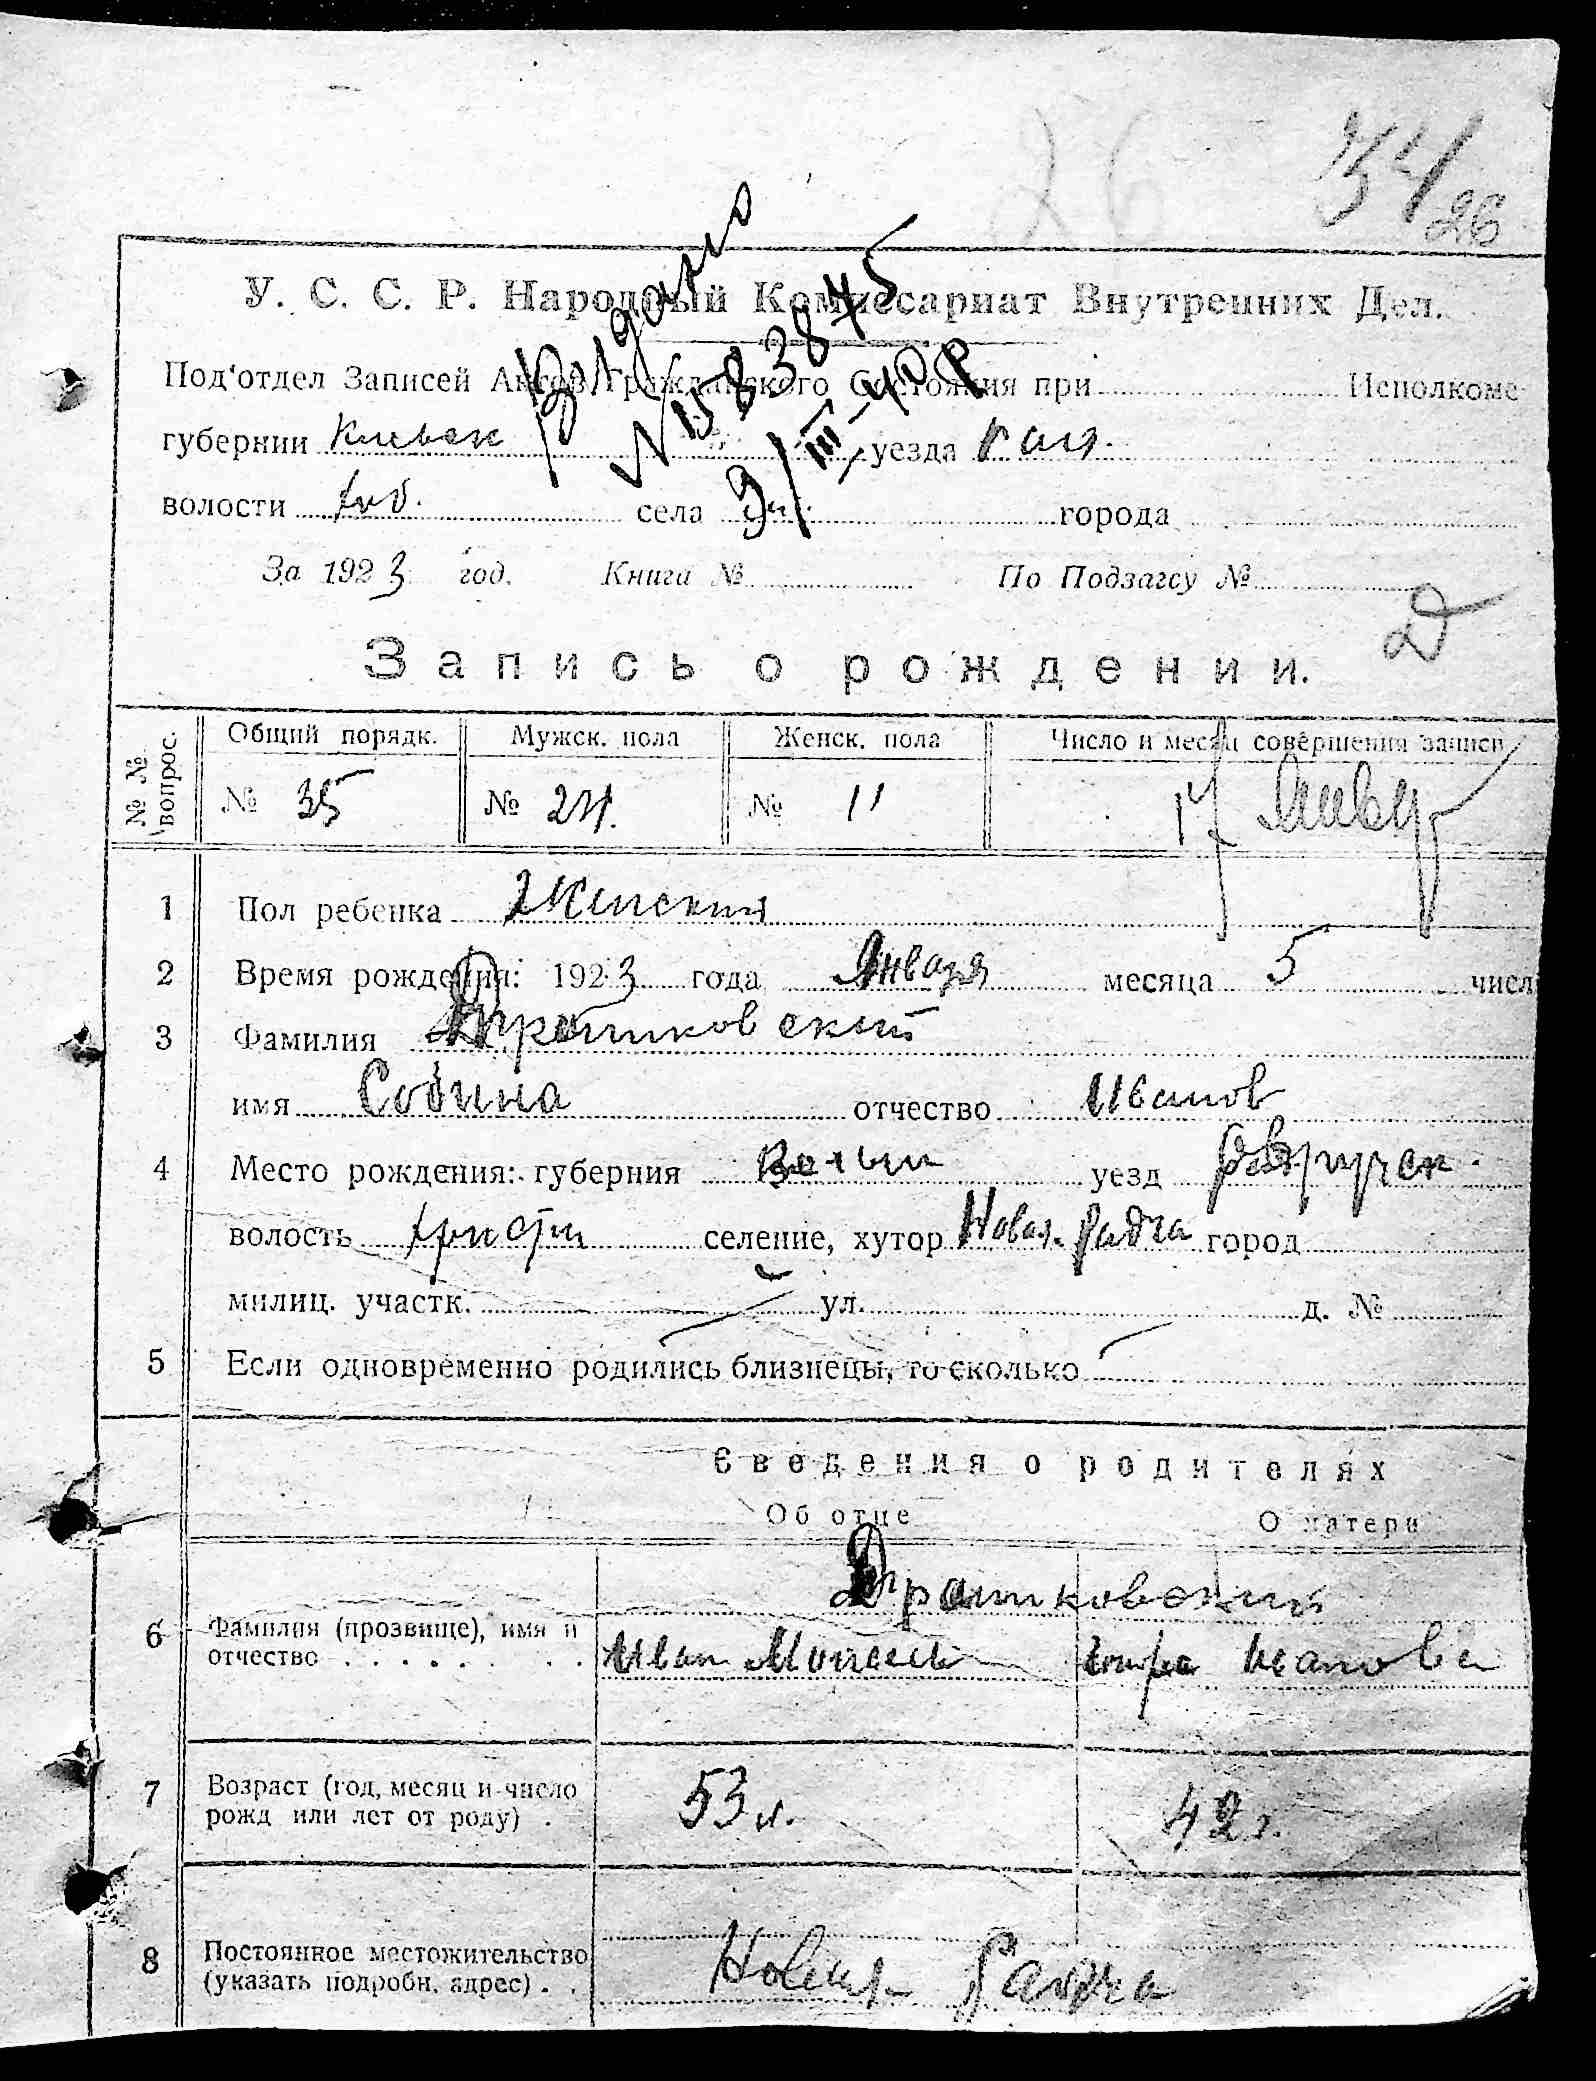 26
34/26
У. С. С. Р. Народный Комиссариат Внутренних Дел.
Под'отдел Записей Актов Гражданского Состояния при Исполкоме
Выдано
9/III-40 р
губернии Киевск уезда
волости села города
За 1923 год. Книга № По Подзагсу №
Д
Запись о рождении.
№ № вопрос. Общий порядк. Мужск. пола Женск. пола Число и месяц совершения записи
№ 35 № 24. № 11 17 Январ
1 Пол ребенка Женский
2 Время рождения: 1923 года Января месяца 5 числ
3 Фамилия Дратковский
имя Собина отчество Иванов
4 Место рождения: губерния Волын уезд Овручск.
волость селение, хутор Новая Радча город
милиц. участк. ул. д. №
5 Если одновременно родились близнецы, то сколько
Сведения о родителях
Об отце О матери
Дратковский
6 Фамилия (прозвище), имя и
отчество Иван Иванова
7 Возраст (год, месяц и число
рожд или лет от роду) . 53 л. 42 г.
8 Постоянное местожительство
(указать подробн. адрес) . . Новая Радча